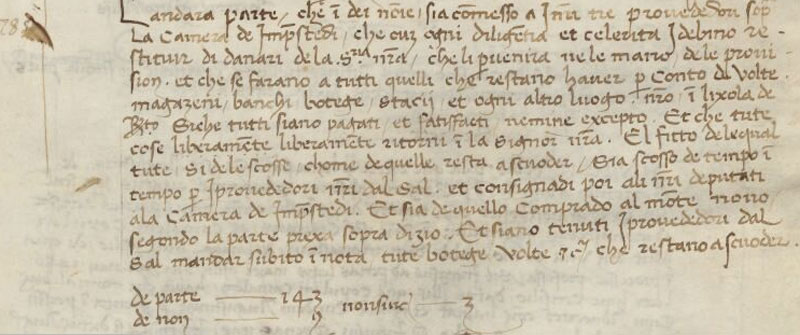 Landara parte, che ī dei noīe, sia cōmesso a Inr̄i tre provededori sopᵃ
La Camera de Imp̄stedi, che cuȝ ogni diligētia et celerita Idebino re-
stituir di danari de la .Sᵣⁱᵃ. nr̄a, che li ꝑvenira ne le mano, dele provi-
sion. et che se farano a tutti quelli che restano haver ꝑ Conto de Volte
magazeni, banchi botege, stacij, et ogni altro luogo. nr̄o, ī lixola de
Rᵗᵒ Siche tutti siano pagati, et satisfacti nemine excepto. Et che tute
cose liberamēte liberamēte ritorni ī la Signoī nr̄a. El fitto dele qual
tute, Si dele scosse, chome de quelle resta a scuoder, Sia scosso de tempo ī
tempo ꝑ I provededori nr̄i dal Sal. et consignadi poi ali nr̄i deputati
ala Camera de Imp̄stedi. Et sia de quello Comprado al mōte novo,
segondo la parte prexa sopra dizio. Et siano tenuti I provededori dal
Sal mandar subito ī nota tute botege Volte ⁊cᵃ, che restano a scuoder.
de parte 143 nonsinc̄ 3
de non 9